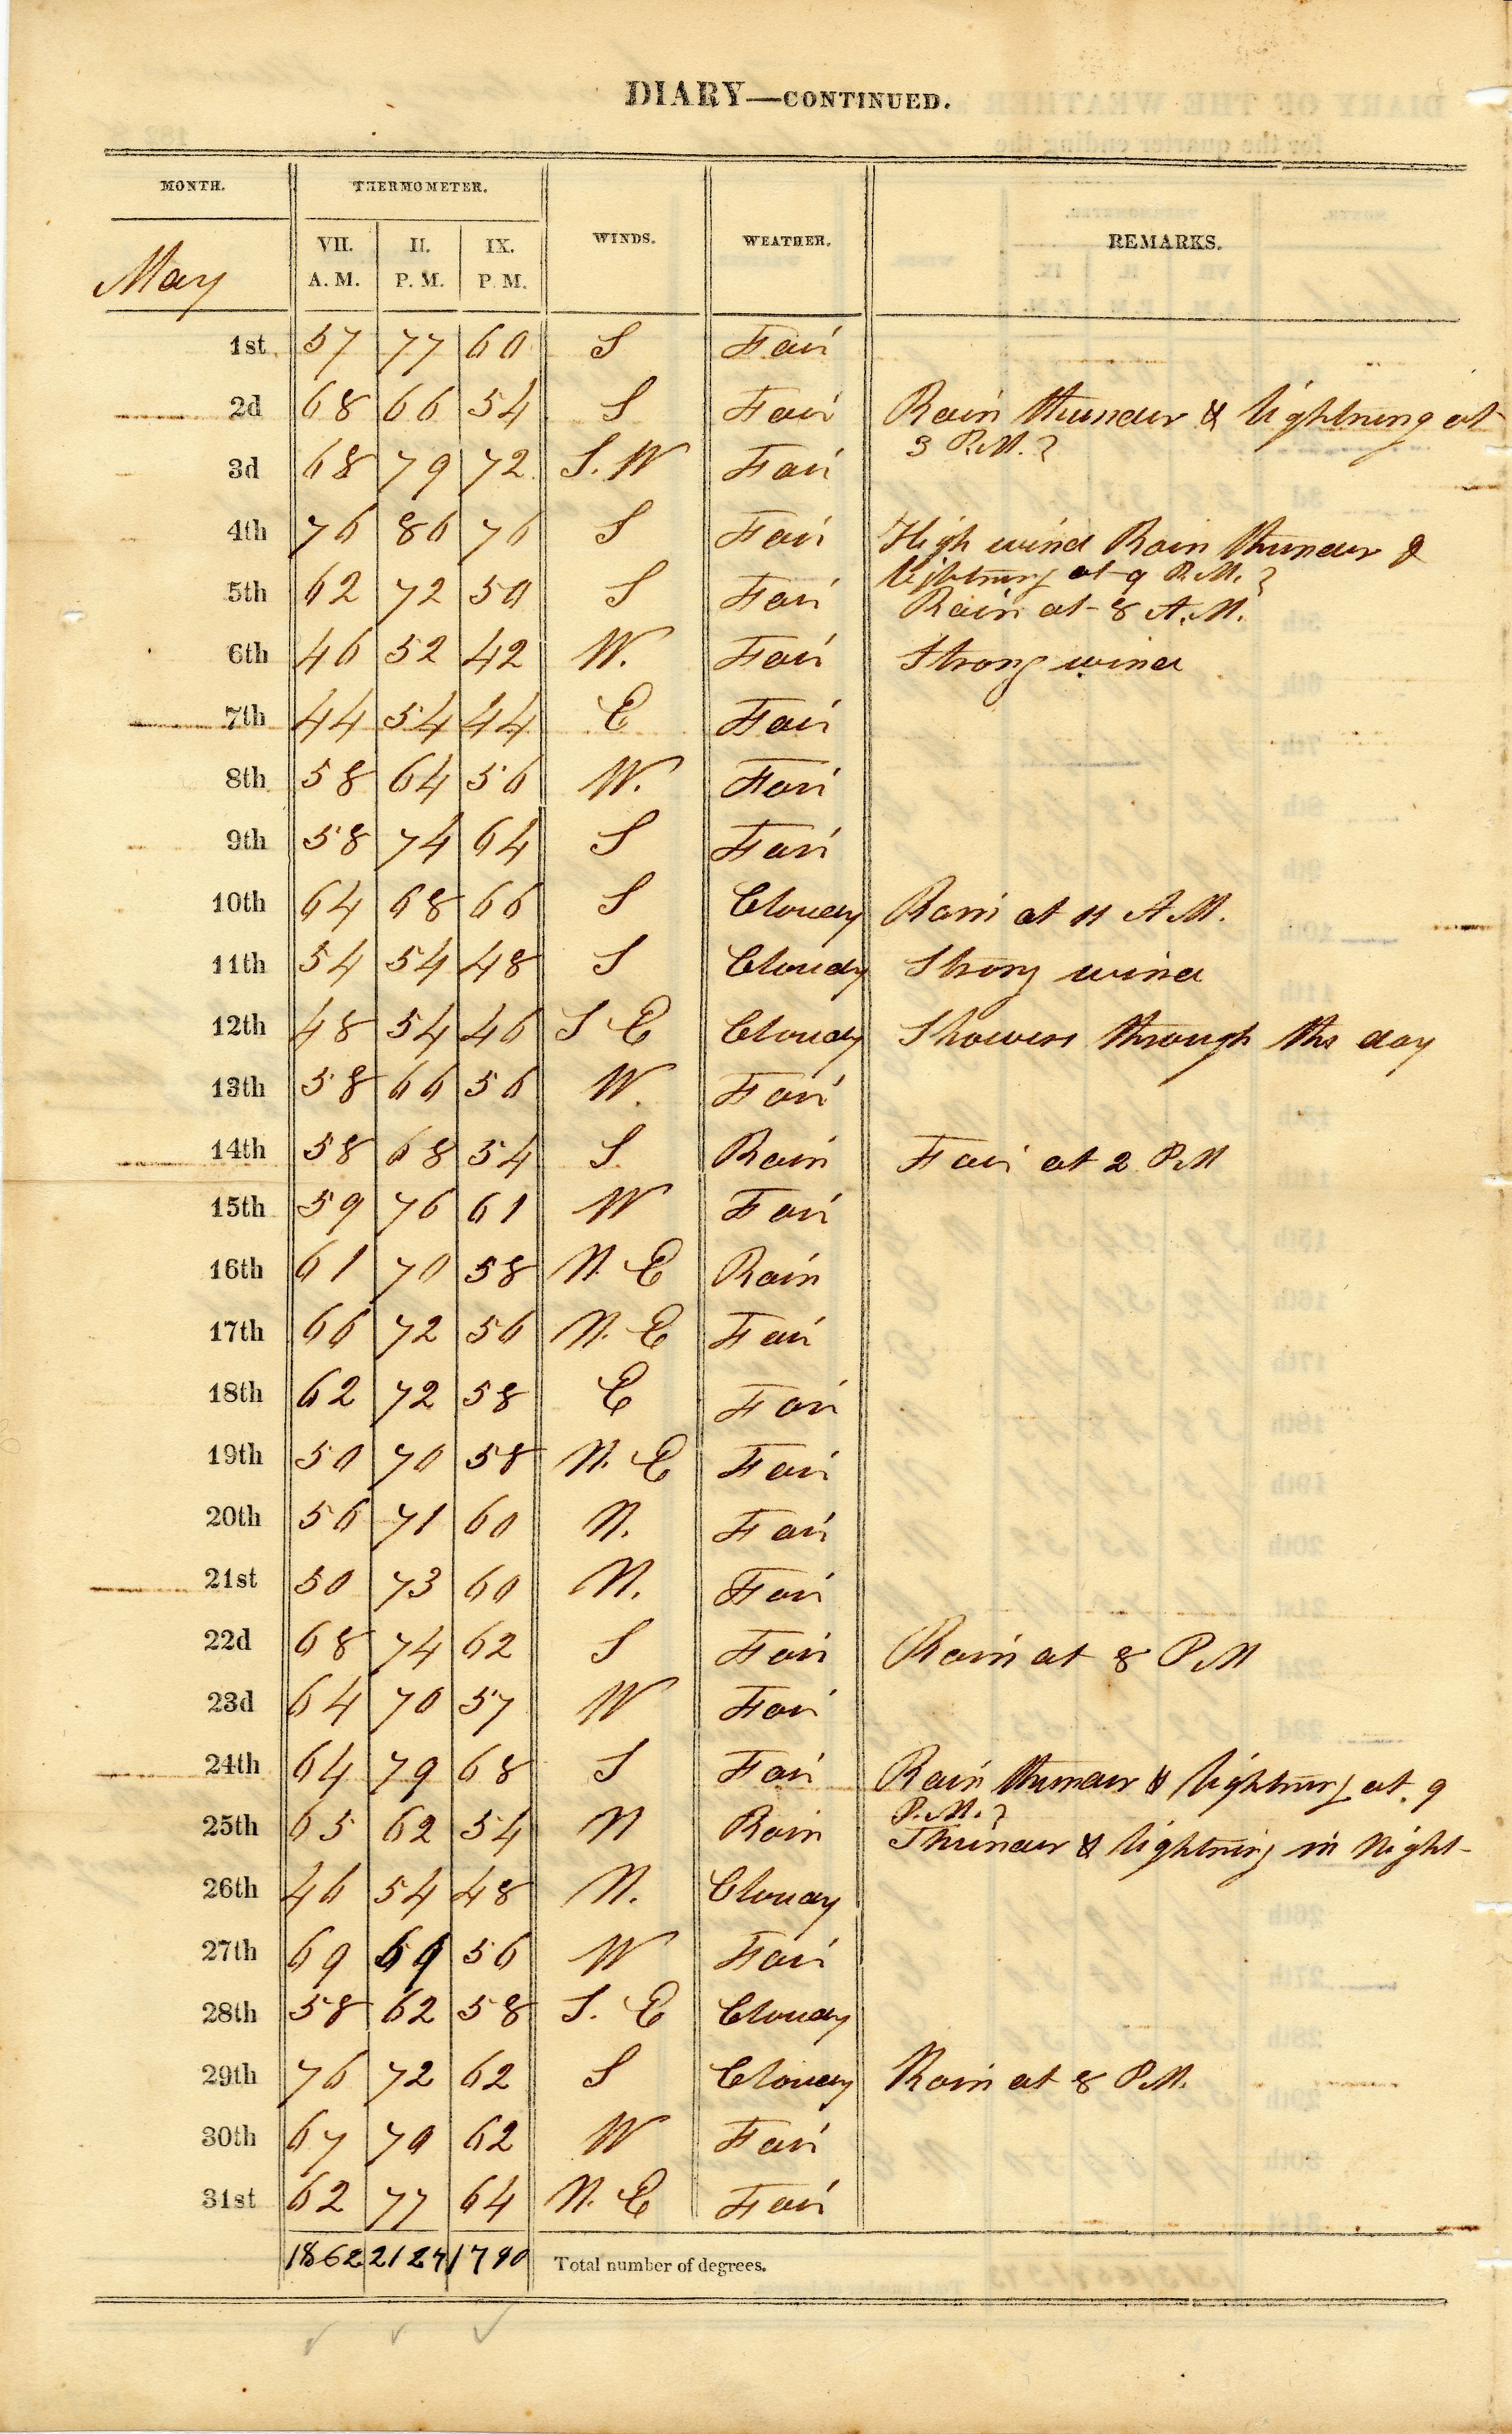 DIARY—CONTINUED.
MONTH. THERMOMETER. WINDS. WEATHER. REMARKS.
May VII. A.M. II. P.M. IX. P.M.
1st 57 77 60 S Fair
2d 68 66 54 S Fair Rain thunder & lightning at
3 P.M.?
3d 68 79 72 S.W Fair
4th 76 86 76 S Fair High wind Rain thunder &
lightning at 9 P.M.?
5th 62 72 50 S Fair Rain at 8 A.M.
6th 46 52 42 W. Fair Strong wind
7th 44 54 44 E Fair
8th 58 64 56 W. Fair
9th 58 74 64 S Fair
10th 64 68 66 S Cloudy Rain at 11 A.M.
11th 54 54 48 S Cloudy Strong wind
12th 48 54 46 S E Cloudy Showers through the day
13th 58 66 56 W. Fair
14th 58 68 54 S Rain Fair at 2 P.M
15th 59 76 61 W Fair
16th 61 70 58 N. E Rain
17th 66 72 56 N. E Fair
18th 62 72 58 E Fair
19th 50 70 58 N. E Fair
20th 56 71 60 N. Fair
21st 50 73 60 N. Fair
22d 68 74 62 S Fair Rain at 8 P.M
23d 64 70 57 W Fair
24th 64 79 68 S Fair Rain thunder & lightning at 9
P.M.?
25th 65 62 54 N Rain Thunder & lightning in Night
26th 46 54 48 N. Cloudy
27th 69 69 56 W Fair
28th 58 62 58 S. E Cloudy
29th 76 72 62 S Cloudy Rain at 8 P.M.
30th 67 70 62 W Fair
31st 62 77 64 N. E Fair
1862 2127 1790 Total number of degrees.